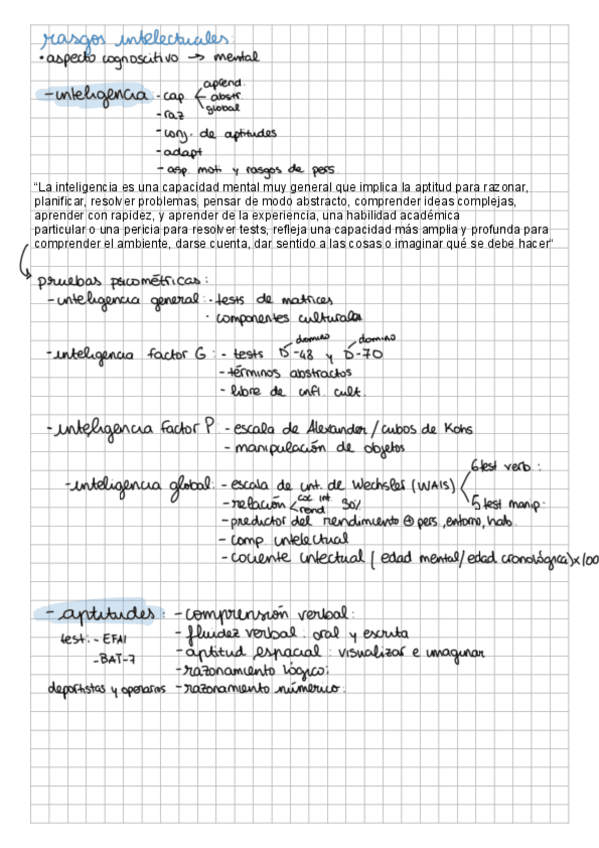 rasgos intelectuales:
• aspecto cognoscitivo → mental
- inteligencia: - cap < aprend. abstr. global
- raz
- conj. de aptitudes
- adapt
- asp. moti y rasgos de pers.
“La inteligencia es una capacidad mental muy general que implica la aptitud para razonar,
planificar, resolver problemas, pensar de modo abstracto, comprender ideas complejas,
aprender con rapidez, y aprender de la experiencia, una habilidad académica
particular o una pericia para resolver tests, refleja una capacidad más amplia y profunda para
comprender el ambiente, darse cuenta, dar sentido a las cosas o imaginar qué se debe hacer“
pruebas psicométricas:
- inteligencia general: · tests de matrices
· componentes culturales
domino domino
- inteligencia factor G: - tests D-48 y D-70
- términos abstractos
- libre de infl. cult.
- inteligencia factor P: - escala de Alexander / cubos de Kohs
- manipulación de objetos
6 test verb:
- inteligencia global: - escala de int. de Wechsler (WAIS)
5 test manip.
- relación < coc int. rend 50%
- predictor del rendimiento ⊕ pers, entorno, hab.
- comp. intelectual
- cociente intectual (edad mental/edad cronológica)x100
- aptitudes: - comprensión verbal:
test: - EFAI - fluidez verbal: oral y escrita
- BAT-7 - aptitud espacial: visualizar e imaginar
- razonamiento lógico:
deportistas y operarios - razonamiento númerico: